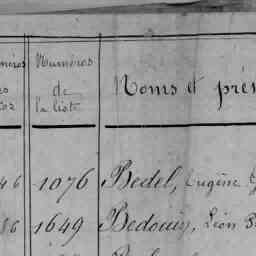 Numéros
de
la liste
Noms et pré
1076 Bedel, Eugène
1649 Bedouin, Léon